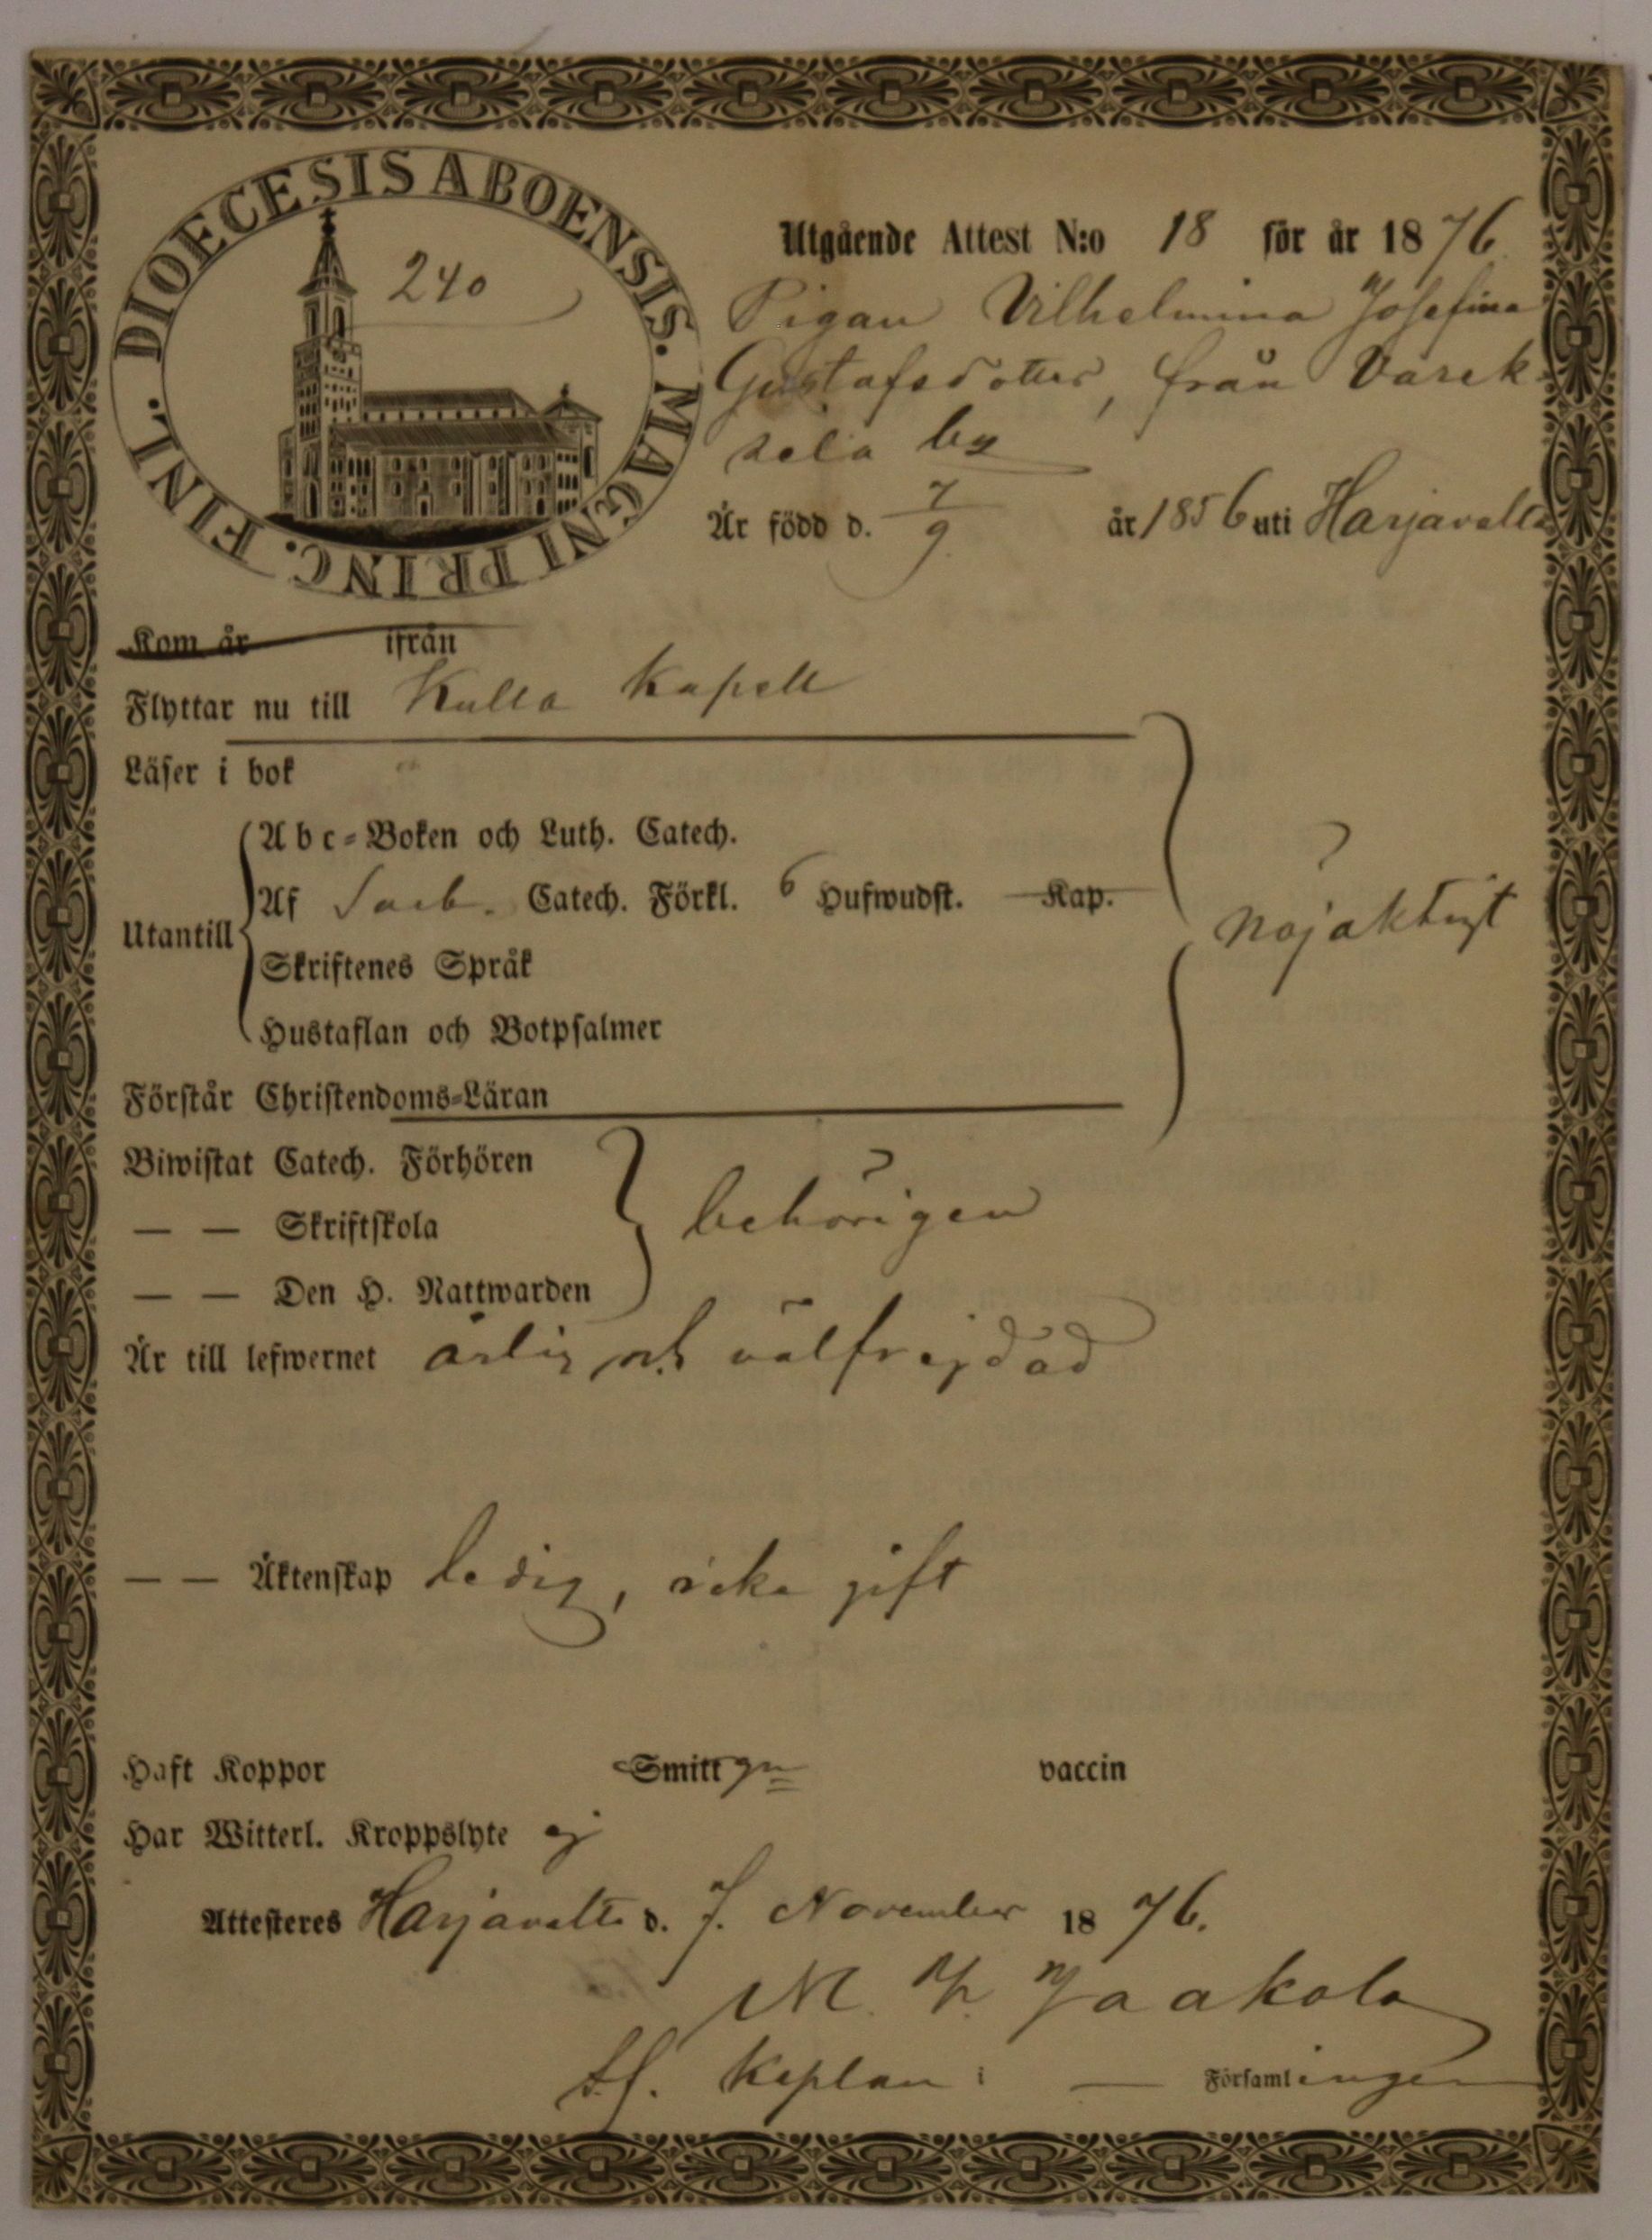 DIOECESIS ABOENSIS. MAGNI PRINC. FINL.
240
Utgående Attest N:o 18 för år 1876
Pigan Vilhelmina Josefina
Gustafsdotter, från Varek-
selä by
Är född d. 7/9 år 1856 uti Harjavalta
Kom år ifrån
Flyttar nu till Kulla Kapell
Läser i bok
Utantill
Abc-Boken och Luth. Catech.
Af Catech. Förkl. 6 Hufwudst. Kap.
Skriftenes Språk
Hustaflan och Botpsalmer
nöjaktigt
Förstår Christendoms-Läran
Biwistat Catech. Förhören
— — Skriftskola
— — Den H. Nattwarden
behörigen
Är till lefwernet ärlig och välfrejdad
— — Äktenskap ledig, icke gift
Haft Koppor Smitt vaccin
Har Witterl. Kroppslyte ej
Attesteres Harjavalta d. 7. November 1876.
M. Jaakola
tf. Kaplan i — Församlingen